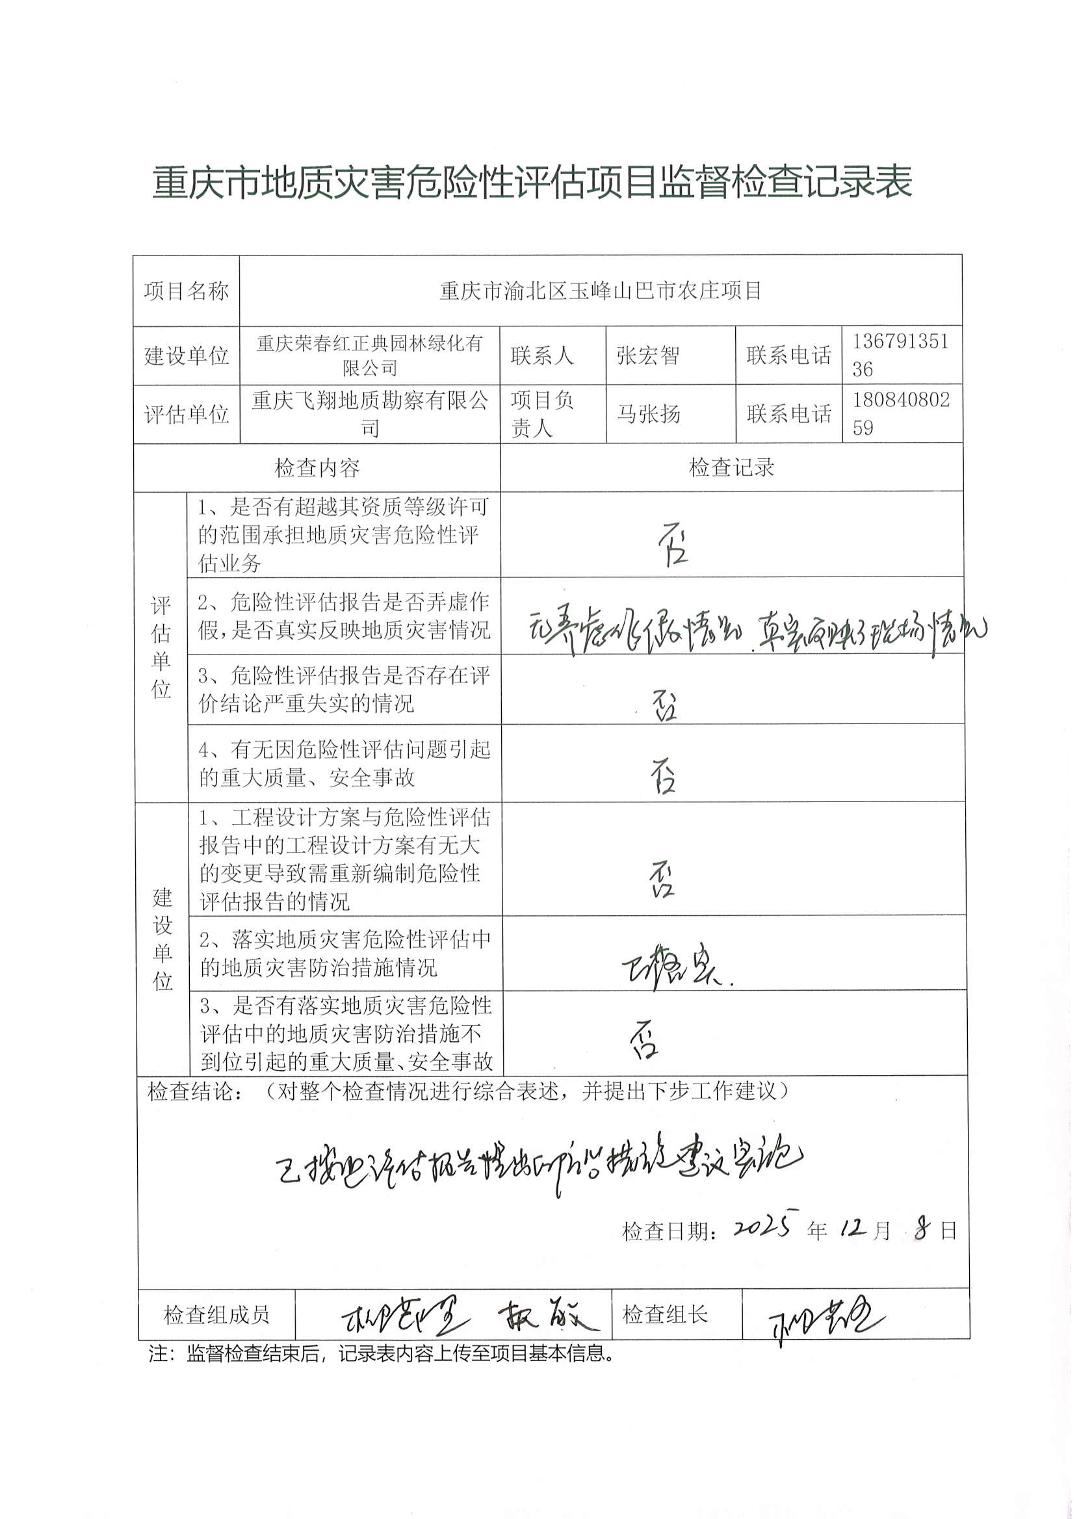 重庆市地质灾害危险性评估项目监督检查记录表
项目名称
重庆市渝北区玉峰山巴市农庄项目
建设单位
重庆荣春红正典园林绿化有
限公司
联系人
张宏智
联系电话
136791351
36
评估单位
重庆飞翔地质勘察有限公
司
项目负
责人
马张扬
联系电话
180840802
59
检查内容
检查记录
评估单位
1、是否有超越其资质等级许可
的范围承担地质灾害危险性评
估业务
否
2、危险性评估报告是否弄虚作
假,是否真实反映地质灾害情况
无弄虚作假情况.真实反映了现场情况
3、危险性评估报告是否存在评
价结论严重失实的情况
否
4、有无因危险性评估问题引起
的重大质量、安全事故
否
建设单位
1、工程设计方案与危险性评估
报告中的工程设计方案有无大
的变更导致需重新编制危险性
评估报告的情况
否
2、落实地质灾害危险性评估中
的地质灾害防治措施情况
已落实.
3、是否有落实地质灾害危险性
评估中的地质灾害防治措施不
到位引起的重大质量、安全事故
否
检查结论：（对整个检查情况进行综合表述，并提出下步工作建议）
已按照评估报告提出防治措施建议实施
检查日期：2025 年 12 月 8 日
检查组成员
检查组长
注：监督检查结束后，记录表内容上传至项目基本信息。